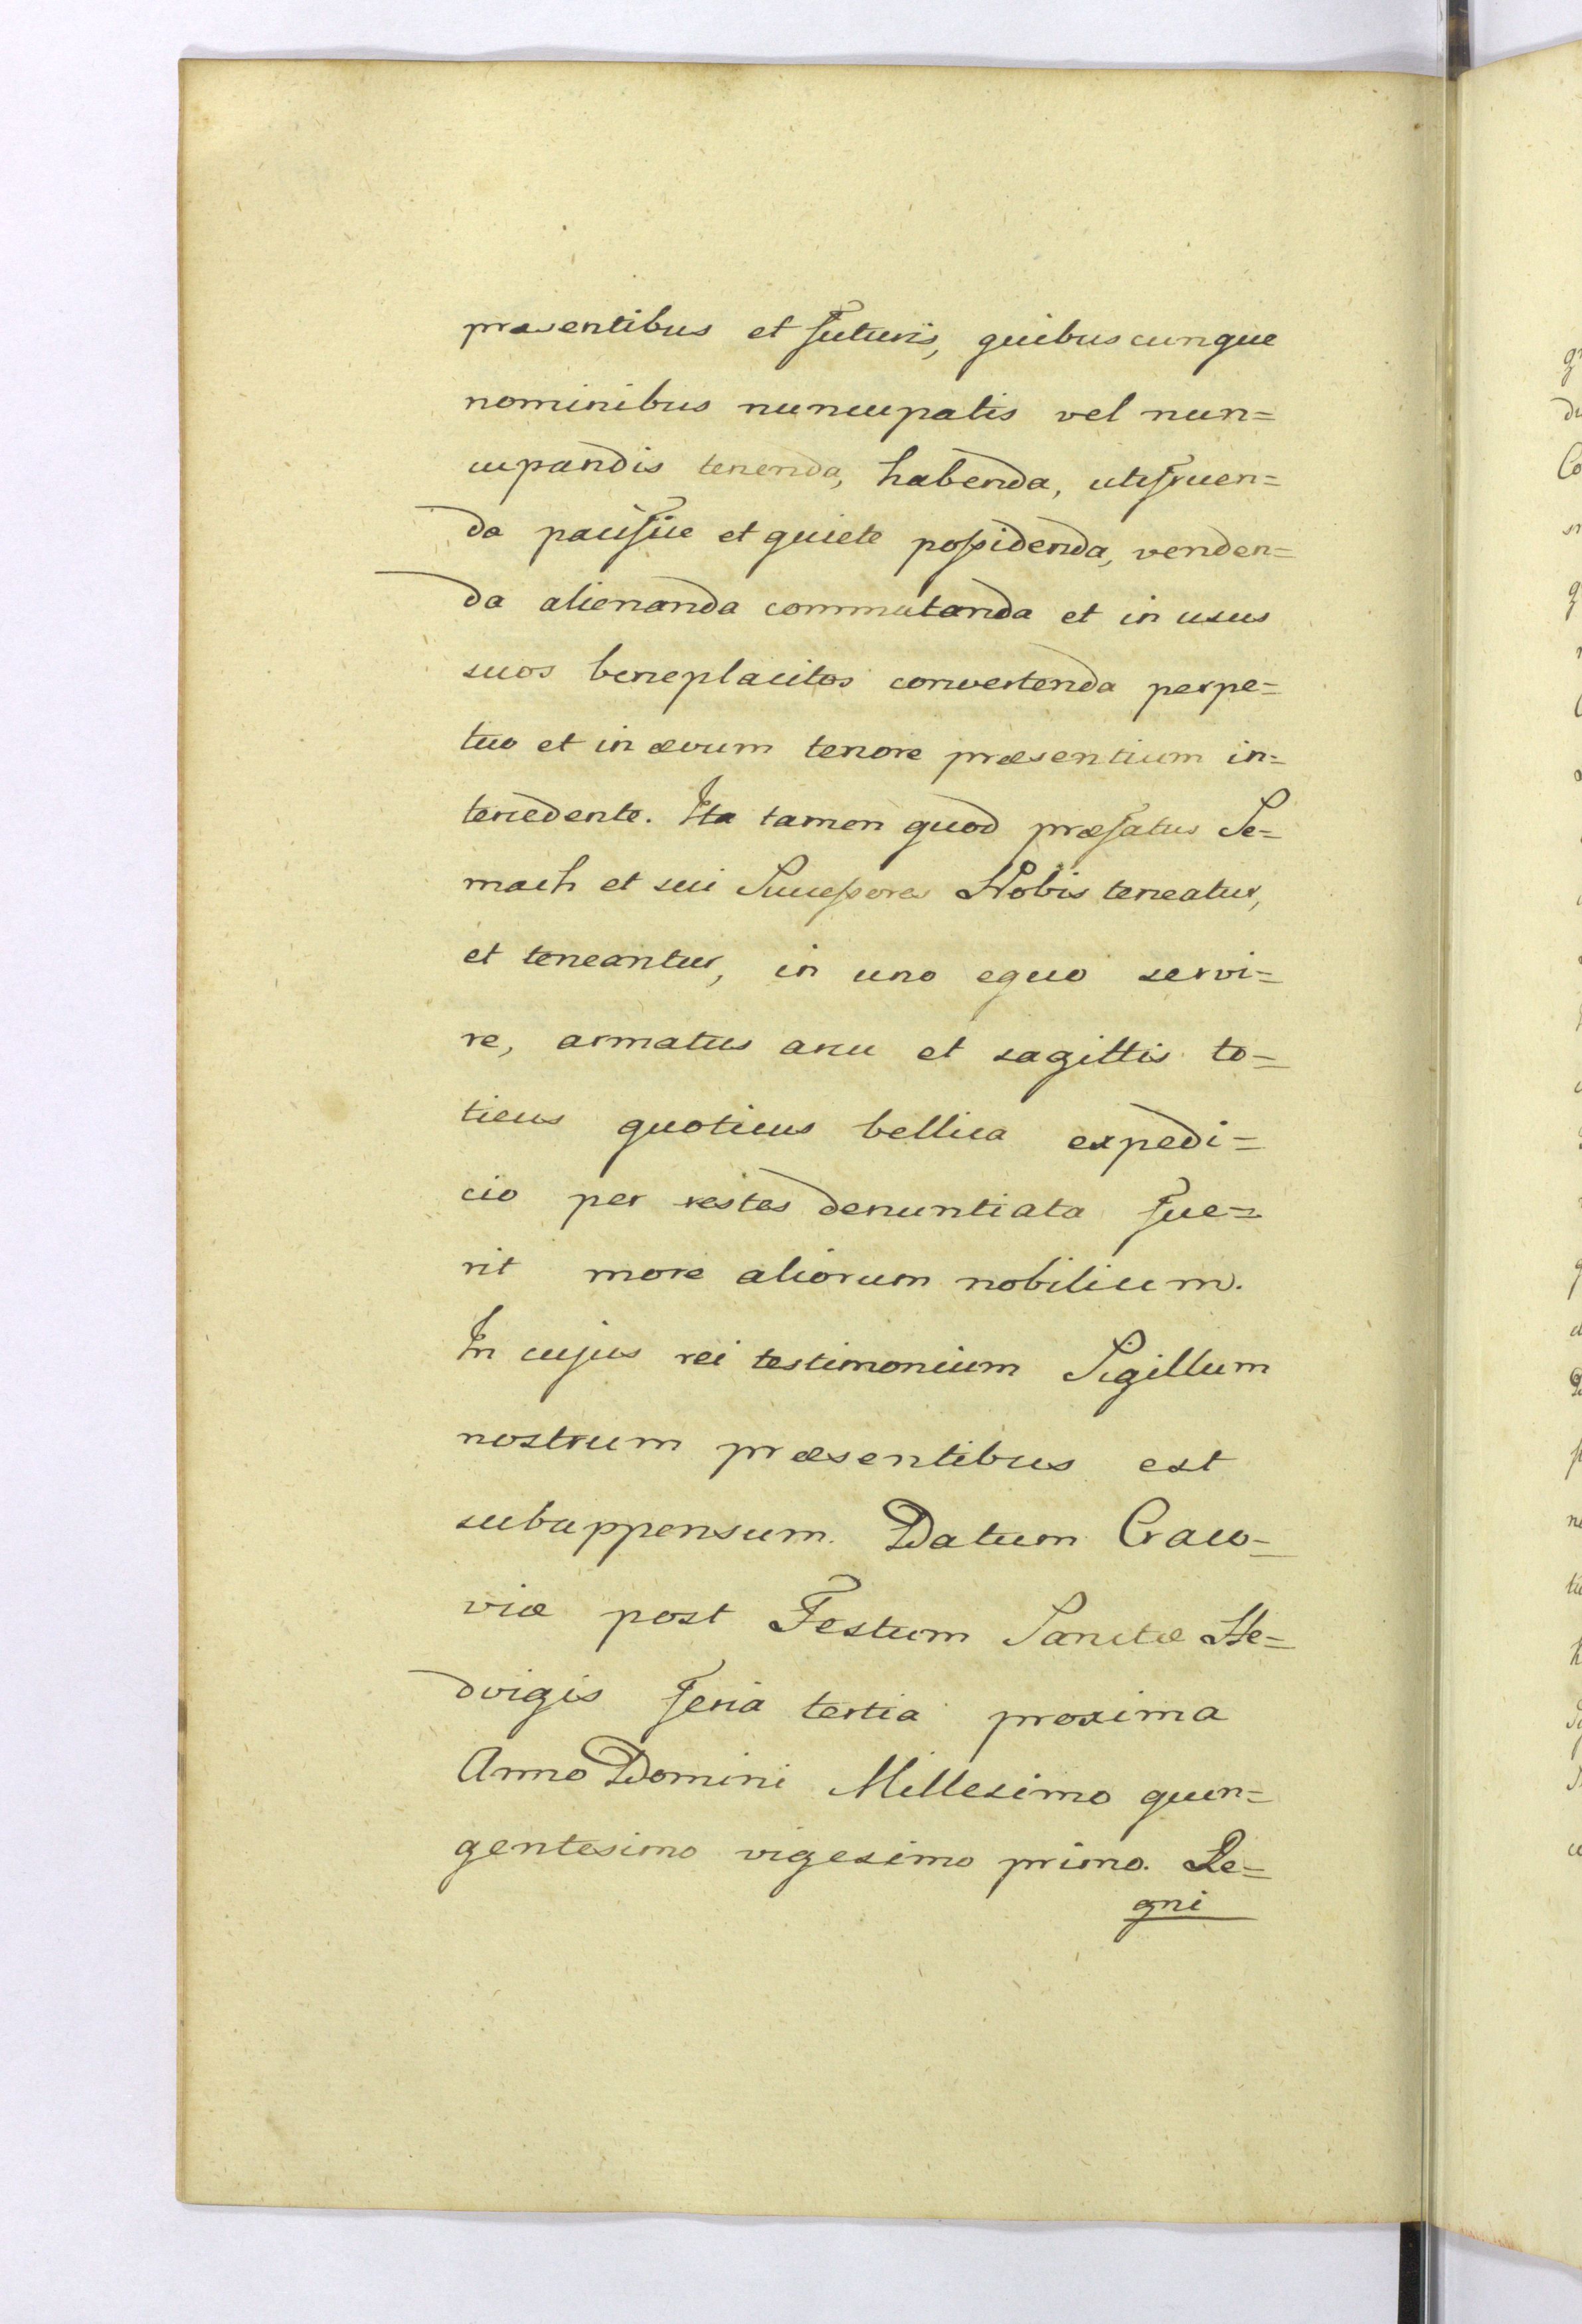 præsentibus et futuris, quibuscunque
nominibus nuncupatis vel nun=
cupandis tenenda, habenda, utifruen=
da pacifice et quiete possidenda, venden=
da alienanda commutanda et in usus
suos beneplacitos convertenda perpe=
tuo et in ævum tenore præsentium in=
tercedente. Ita tamen quod præfatus Se=
mach et sui Successores Nobis teneatur,
et teneantur, in uno equo servi=
re, armatus arcu et sagittis to=
ticus quoticus bellica expedi=
cio per restes denuntiata fue=
rit more aliorum nobilium.
In cujus rei testimonium Sigillum
nostrum præsentibus est
subappensum. Datum Craco=
viæ post Festum Sanctæ He=
dvigis feria tertia proxima
Anno Domini Millesimo quin=
gentesimo vigesimo primo. Re=
gni